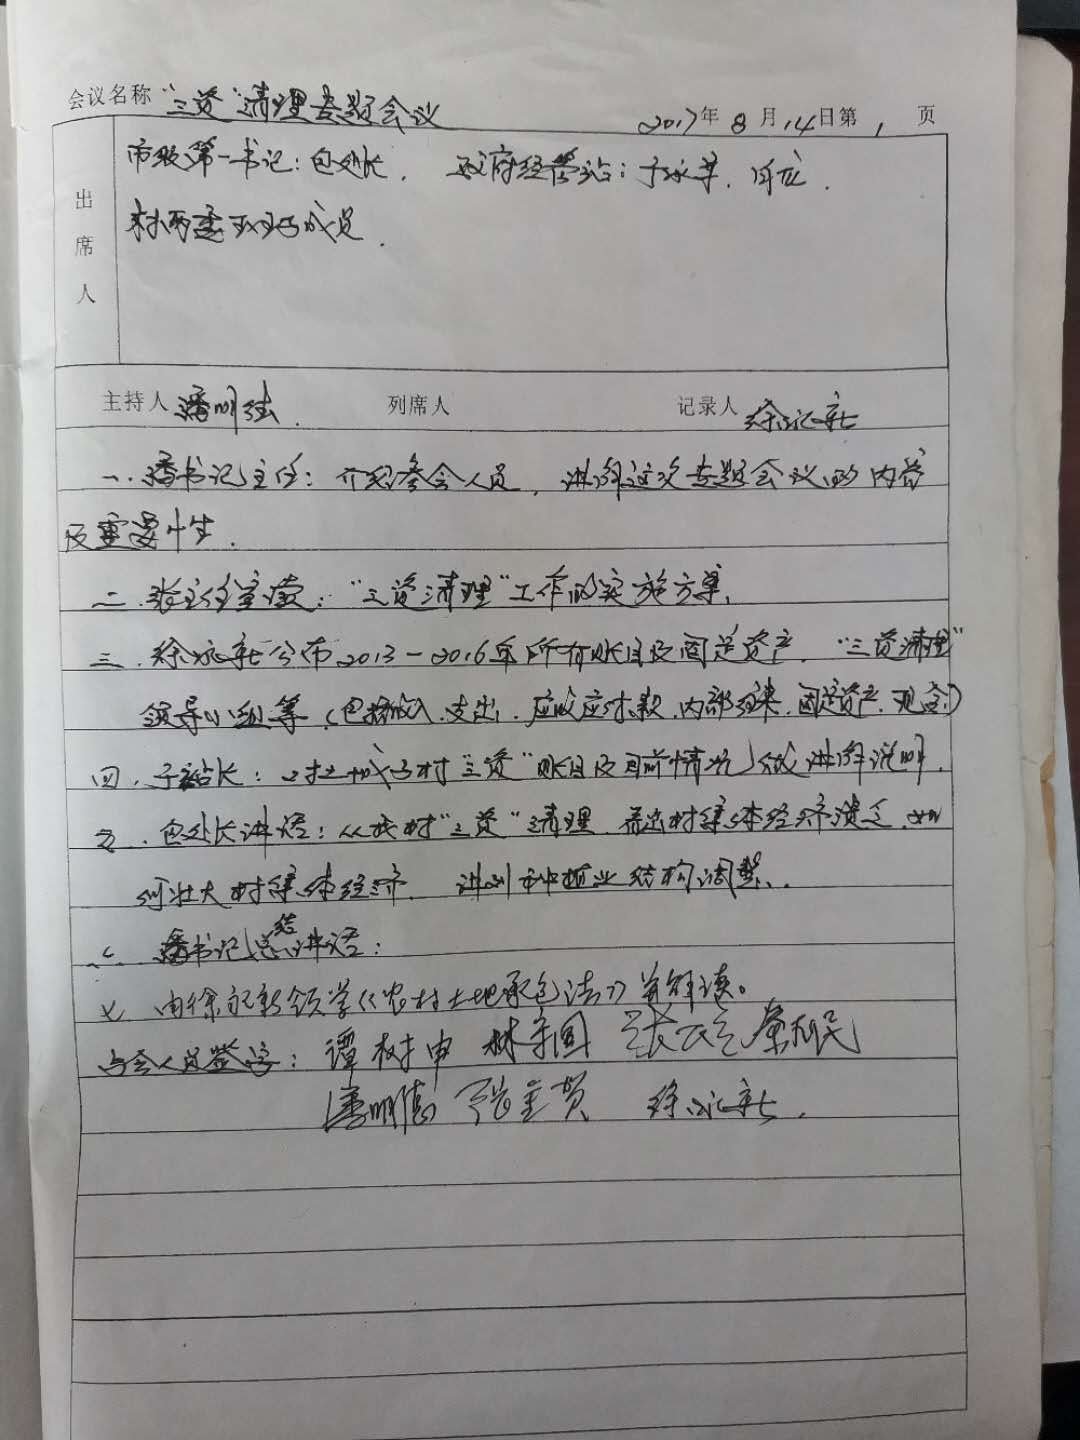 会议名称 "三资"清理专题会议 2017年8月14日第1页
出席人
市级第一书记:包处长. 政府经管站:于永革.闫龙.
村两委班子成员.
主持人 潘明 列席人 记录人 徐永新
一.潘书记主任:介绍参会人员,讲解这次专题会议的内容
及重要性.
二.张主任宣读:"三资清理"工作的实施方案.
三.徐永新公布2013-2016年所有账目及固定资产."三资清理"
领导小组等(包括收入.支出.应收应付款.内部往来.固定资产.现金)
四.于站长:对村"三资"账目及目前情况做讲解说明.
五.包处长讲话:从我村"三资"清理.看出村集体经济溃乏.如
何壮大村集体经济. 种植业结构调整.
六 潘书记总结讲话:
七 由徐永新领学《农村土地承包法》并解读。
与会人员签字:谭树申 林守国
徐永新.